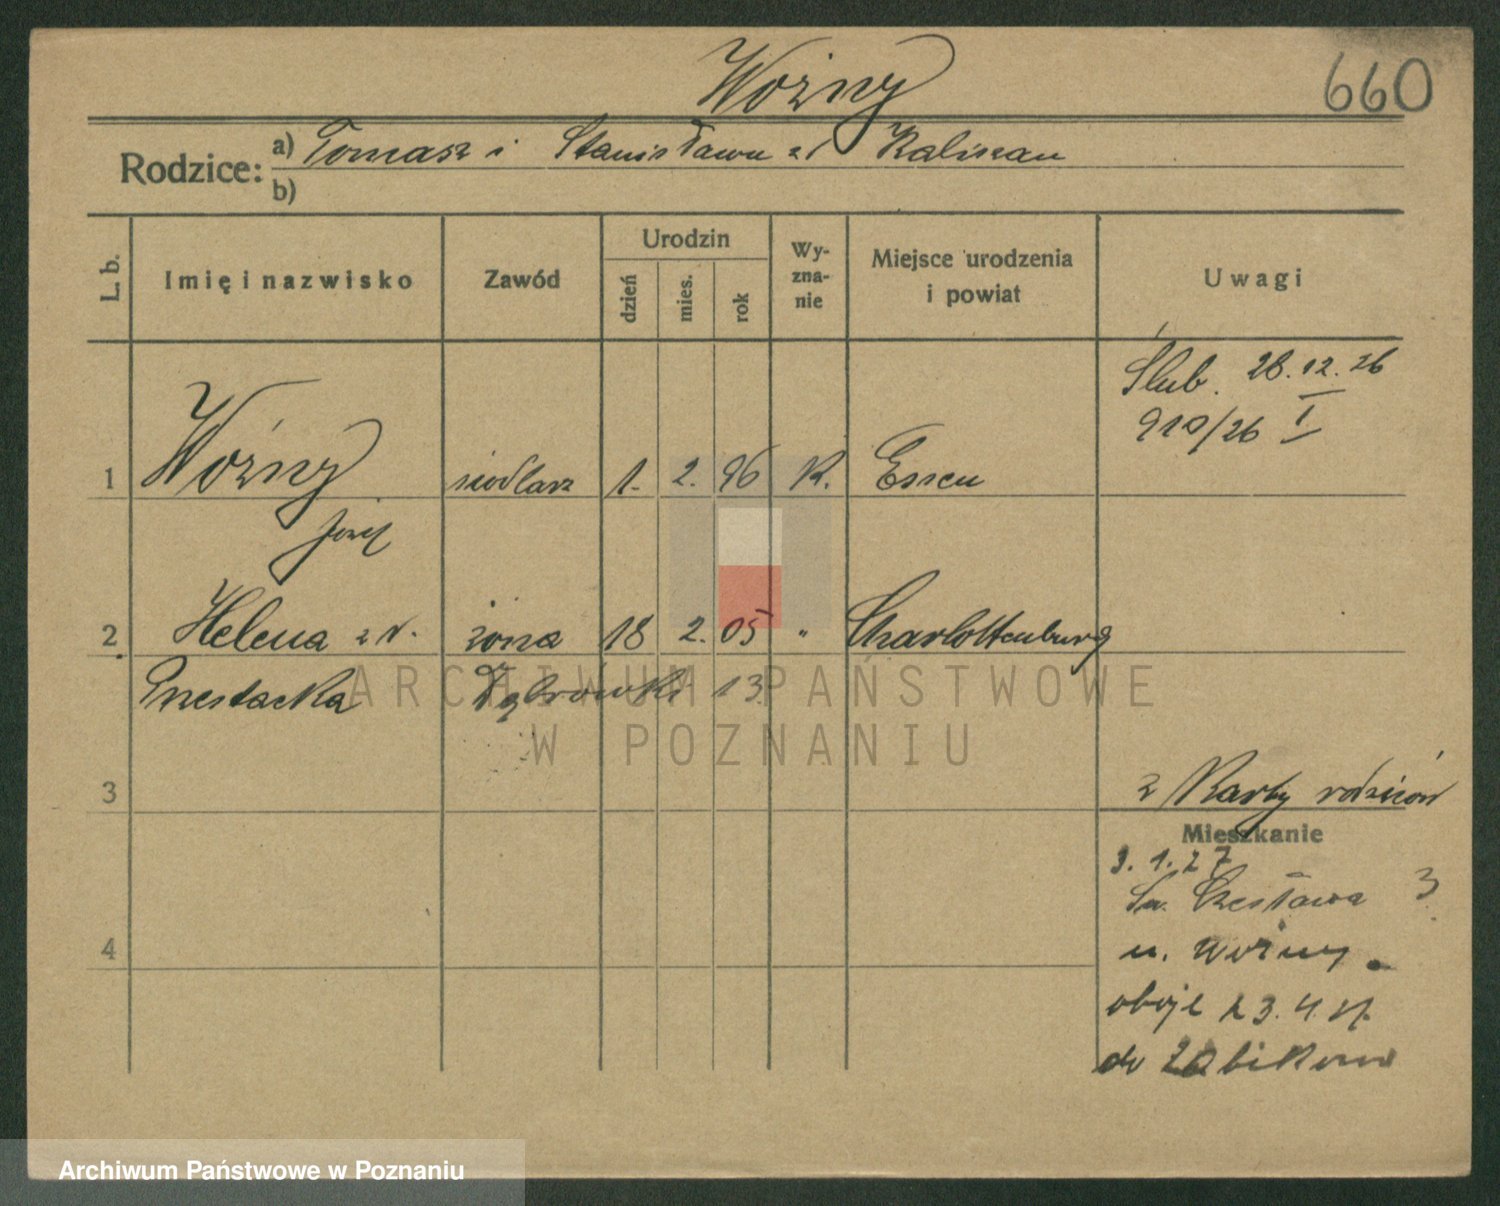 Woźny
660
Rodzice: a) Tomasz i Stanisława zd Kaliszan
b)
L. b. Imię i nazwisko Zawód Urodzin dzień mies. rok Wyzna-nie Miejsce urodzenia i powiat Uwagi
Ślub. 28.12.26
910/26 I
1 Woźny siodlarz 1. 2. 96 K. Essen
Józef
2 Helena z d. żona 18 2. 05 " Charlottenburg
Dąbrówki 13
3 z Karty rodziców
Mieszkanie
3.1.27
Św. Czesława 3
u. Woźny.
4
oboje 23.4.
do Żabikowa
ARCHIWUM PAŃSTWOWE
W POZNANIU
Archiwum Państwowe w Poznaniu